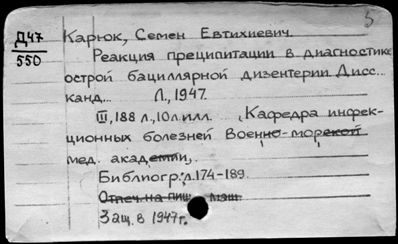 5
Д47
550
Карюк, Семен Евтихиевич.
Реакция преципитации в диагностике
острой бациллярной дизентерии. Дисс...
канд... Л., 1947.
III, 188 л., 10 л. илл. (Кафедра инфек-
ционных болезней Военно-морской
мед. академии).
Библиогр: л. 174-189.
Отпеч. на пиш. маш.
Защ. в 1947г.